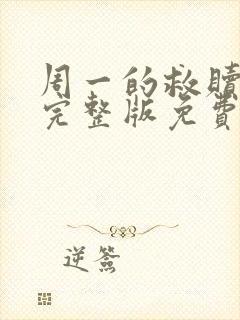 周一的救赎
完整版免费
逆簽